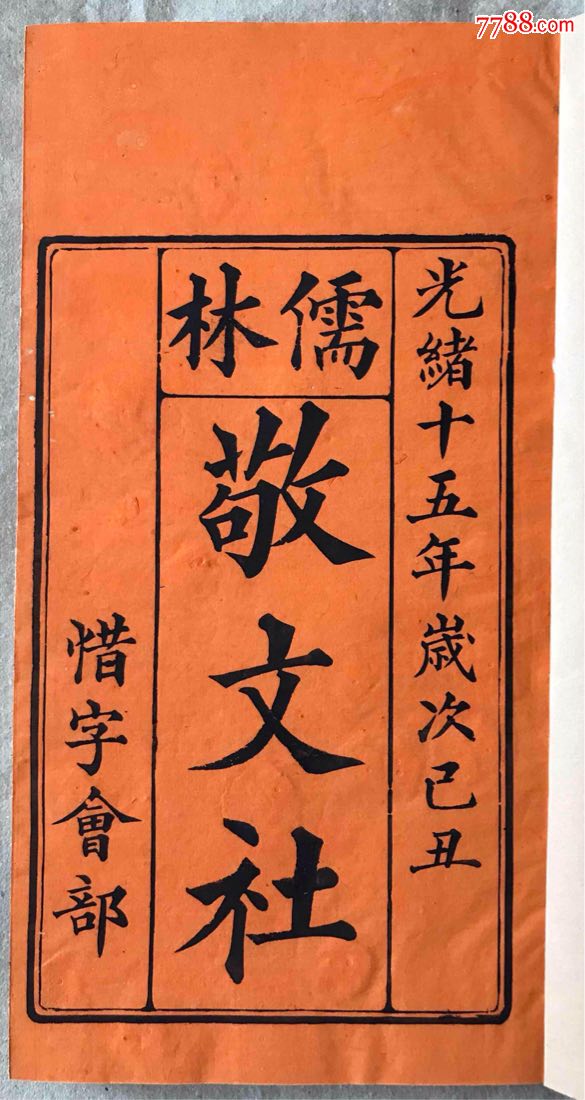 7788.com
光緒十五年歲次己丑
儒林
敬文社
惜字會部